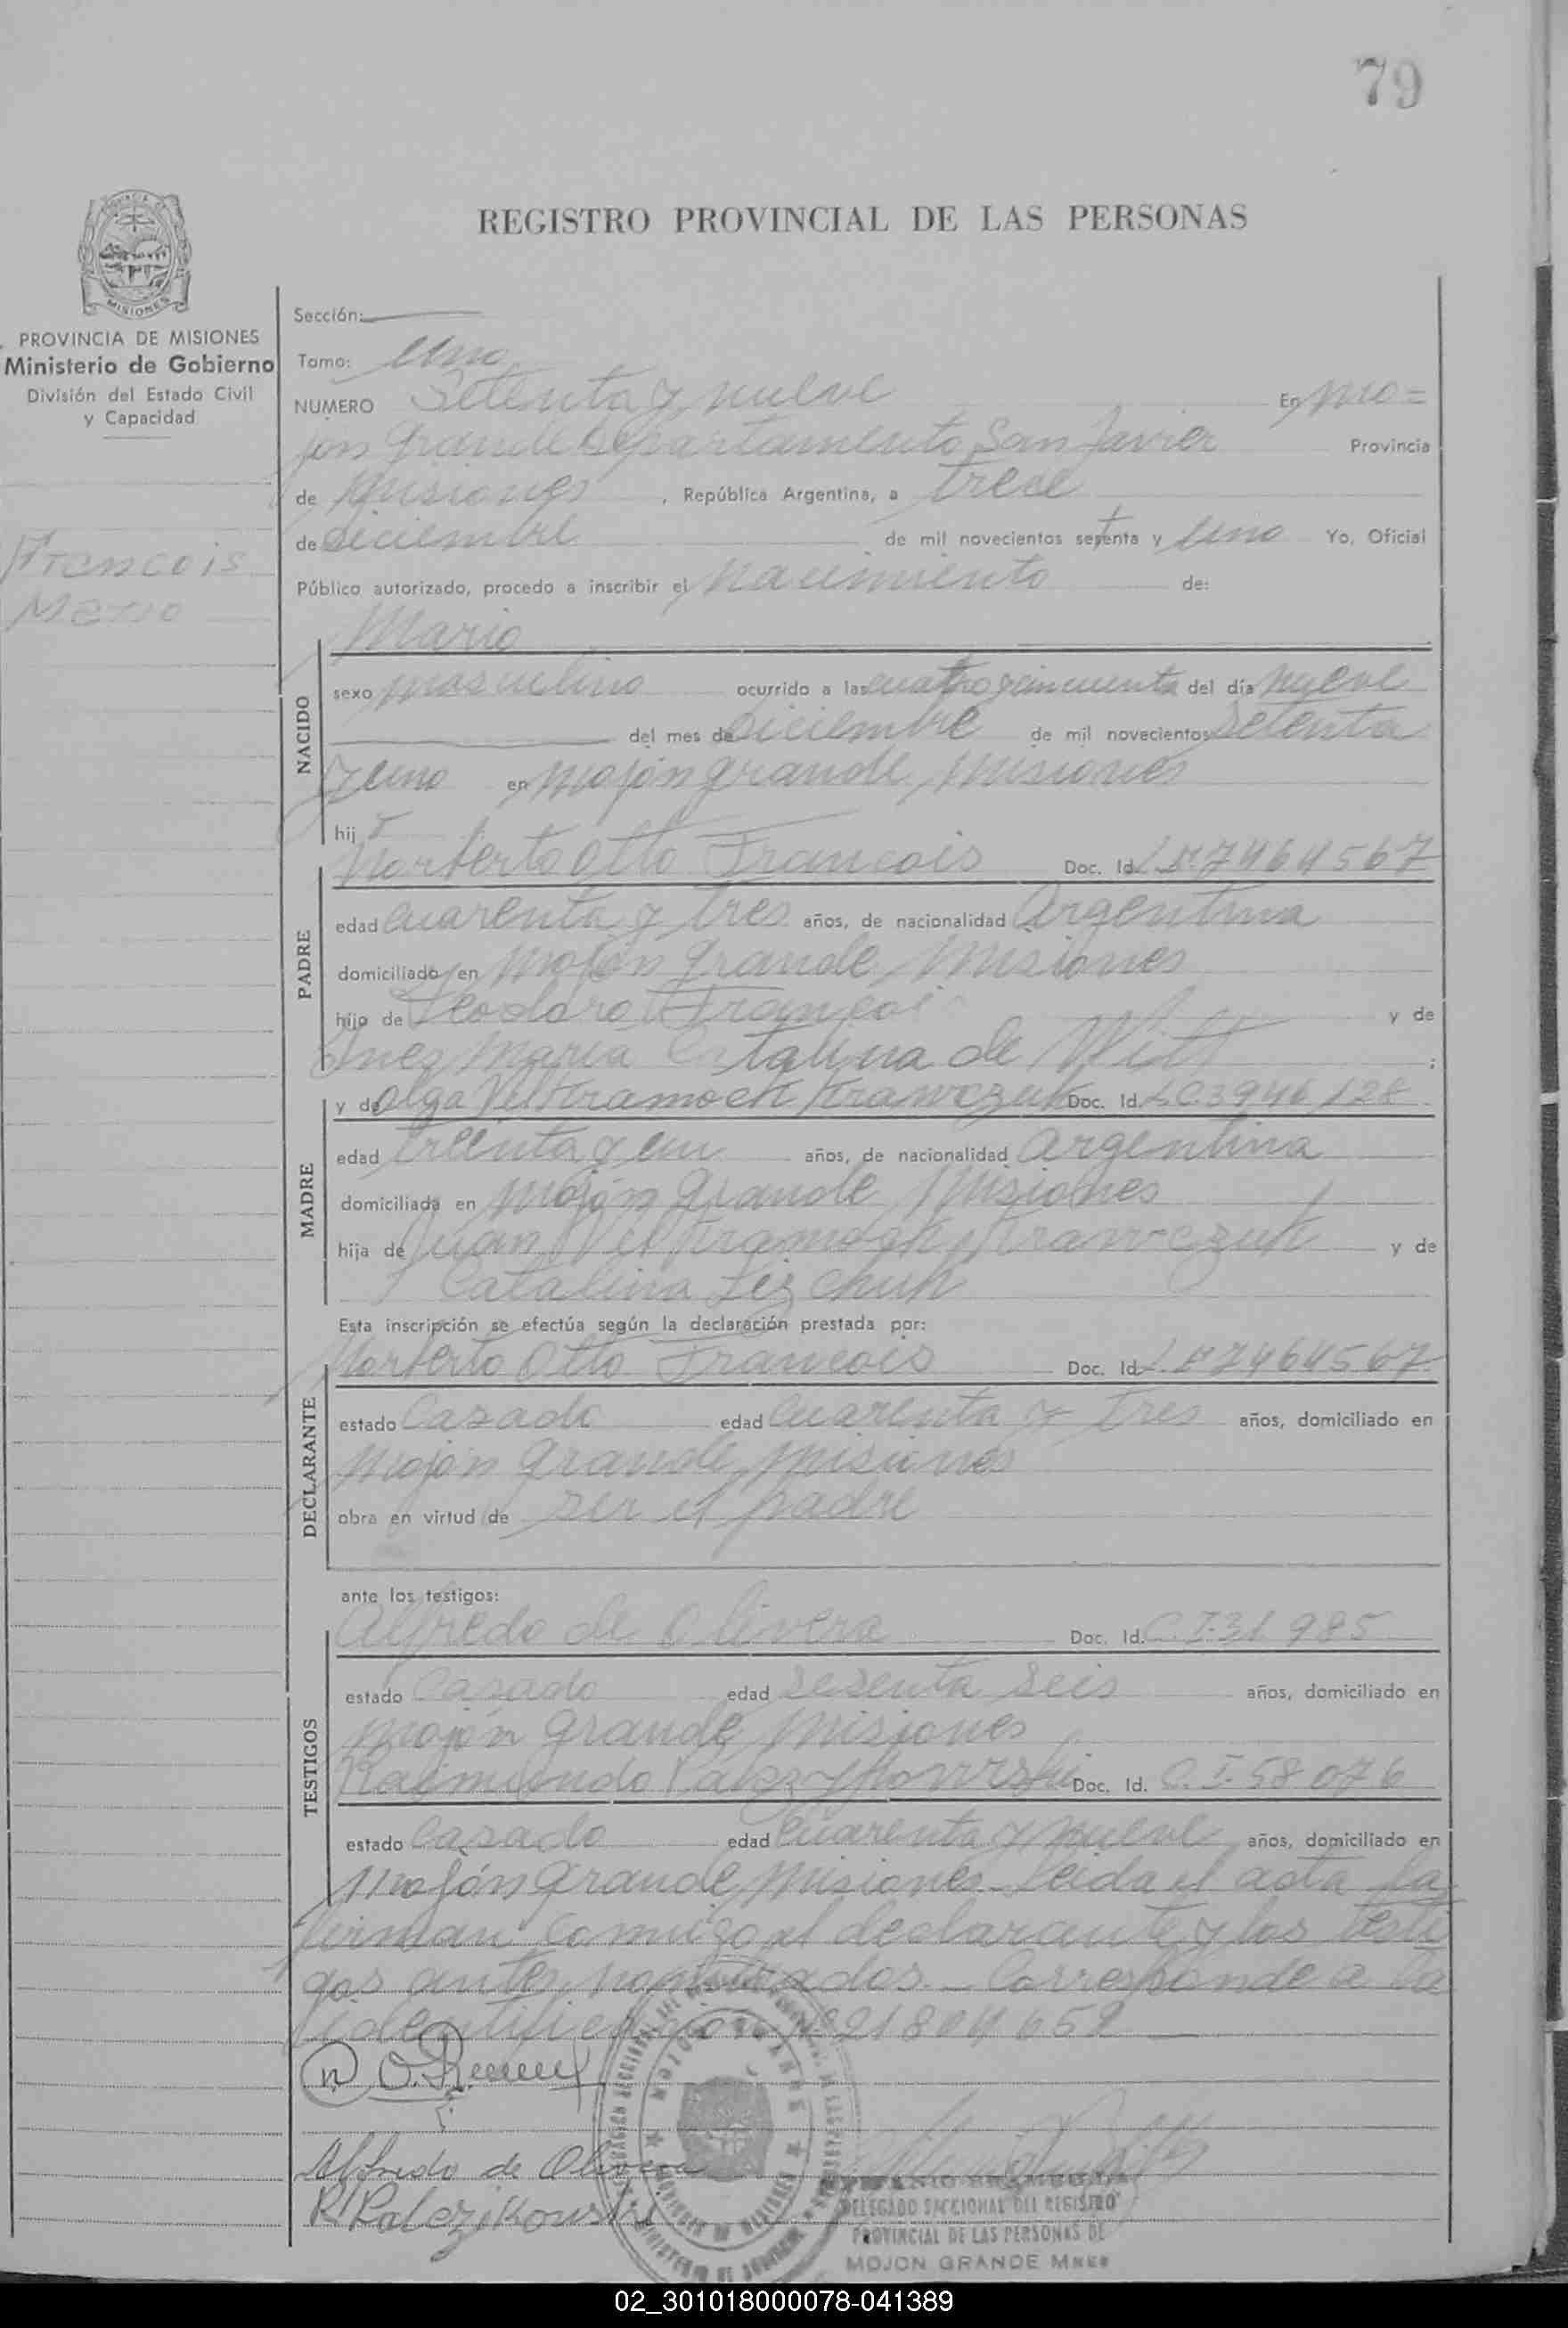 79
REGISTRO PROVINCIAL DE LAS PERSONAS
MISIONES
PROVINCIA DE MISIONES
Ministerio de Gobierno
División del Estado Civil
y Capacidad
Francois
Mario
Sección:
Tomo: Uno
NUMERO Setenta y nueve En Mo=
jón Grande Departamento San Javier Provincia
de Misiones , República Argentina, a trece
de diciembre de mil novecientos setenta y uno Yo, Oficial
Público autorizado, procedo a inscribir el nacimiento de:
Mario
NACIDO
sexo masculino ocurrido a las cuatro y cincuenta del día nueve
del mes de diciembre de mil novecientos setenta
y uno en Mojón Grande, Misiones
hij o
PADRE
Norberto Otto Francois Doc. Id. L.E. 7464567
edad cuarenta y tres años, de nacionalidad Argentina
domiciliado en Mojón Grande, Misiones
hijo de Teodoro Francois y de
Ines Maria Catalina de Witt ;
MADRE
y de Olga Krawczuk Doc. Id. L.C. 3946128
edad treinta y un años, de nacionalidad Argentina
domiciliada en Mojón Grande, Misiones
hija de Juan Krawczuk y de
Catalina
Esta inscripción se efectúa según la declaración prestada por:
DECLARANTE
Norberto Otto Francois Doc. Id. L.E. 7464567
estado Casado edad Cuarenta y tres años, domiciliado en
Mojón Grande, Misiones
obra en virtud de ser el padre
ante los testigos:
TESTIGOS
Alfredo de Olivera Doc. Id. C.I. 31 985
estado Casado edad sesenta seis años, domiciliado en
Mojón Grande, Misiones
Raimundo Doc. Id. C.I. 58 076
estado Casado edad Cuarenta y nueve años, domiciliado en
Mojón Grande, Misiones. Leida el acta la
firman conmigo el declarante y los testi
gos antes nombrados. - Corresponde a la
identificación Nº 21804652
Alfredo de Olivera
DELEGADO SECCIONAL DEL REGISTRO
PROVINCIAL DE LAS PERSONAS DE
MOJON GRANDE Mnes
02_301018000078-041389